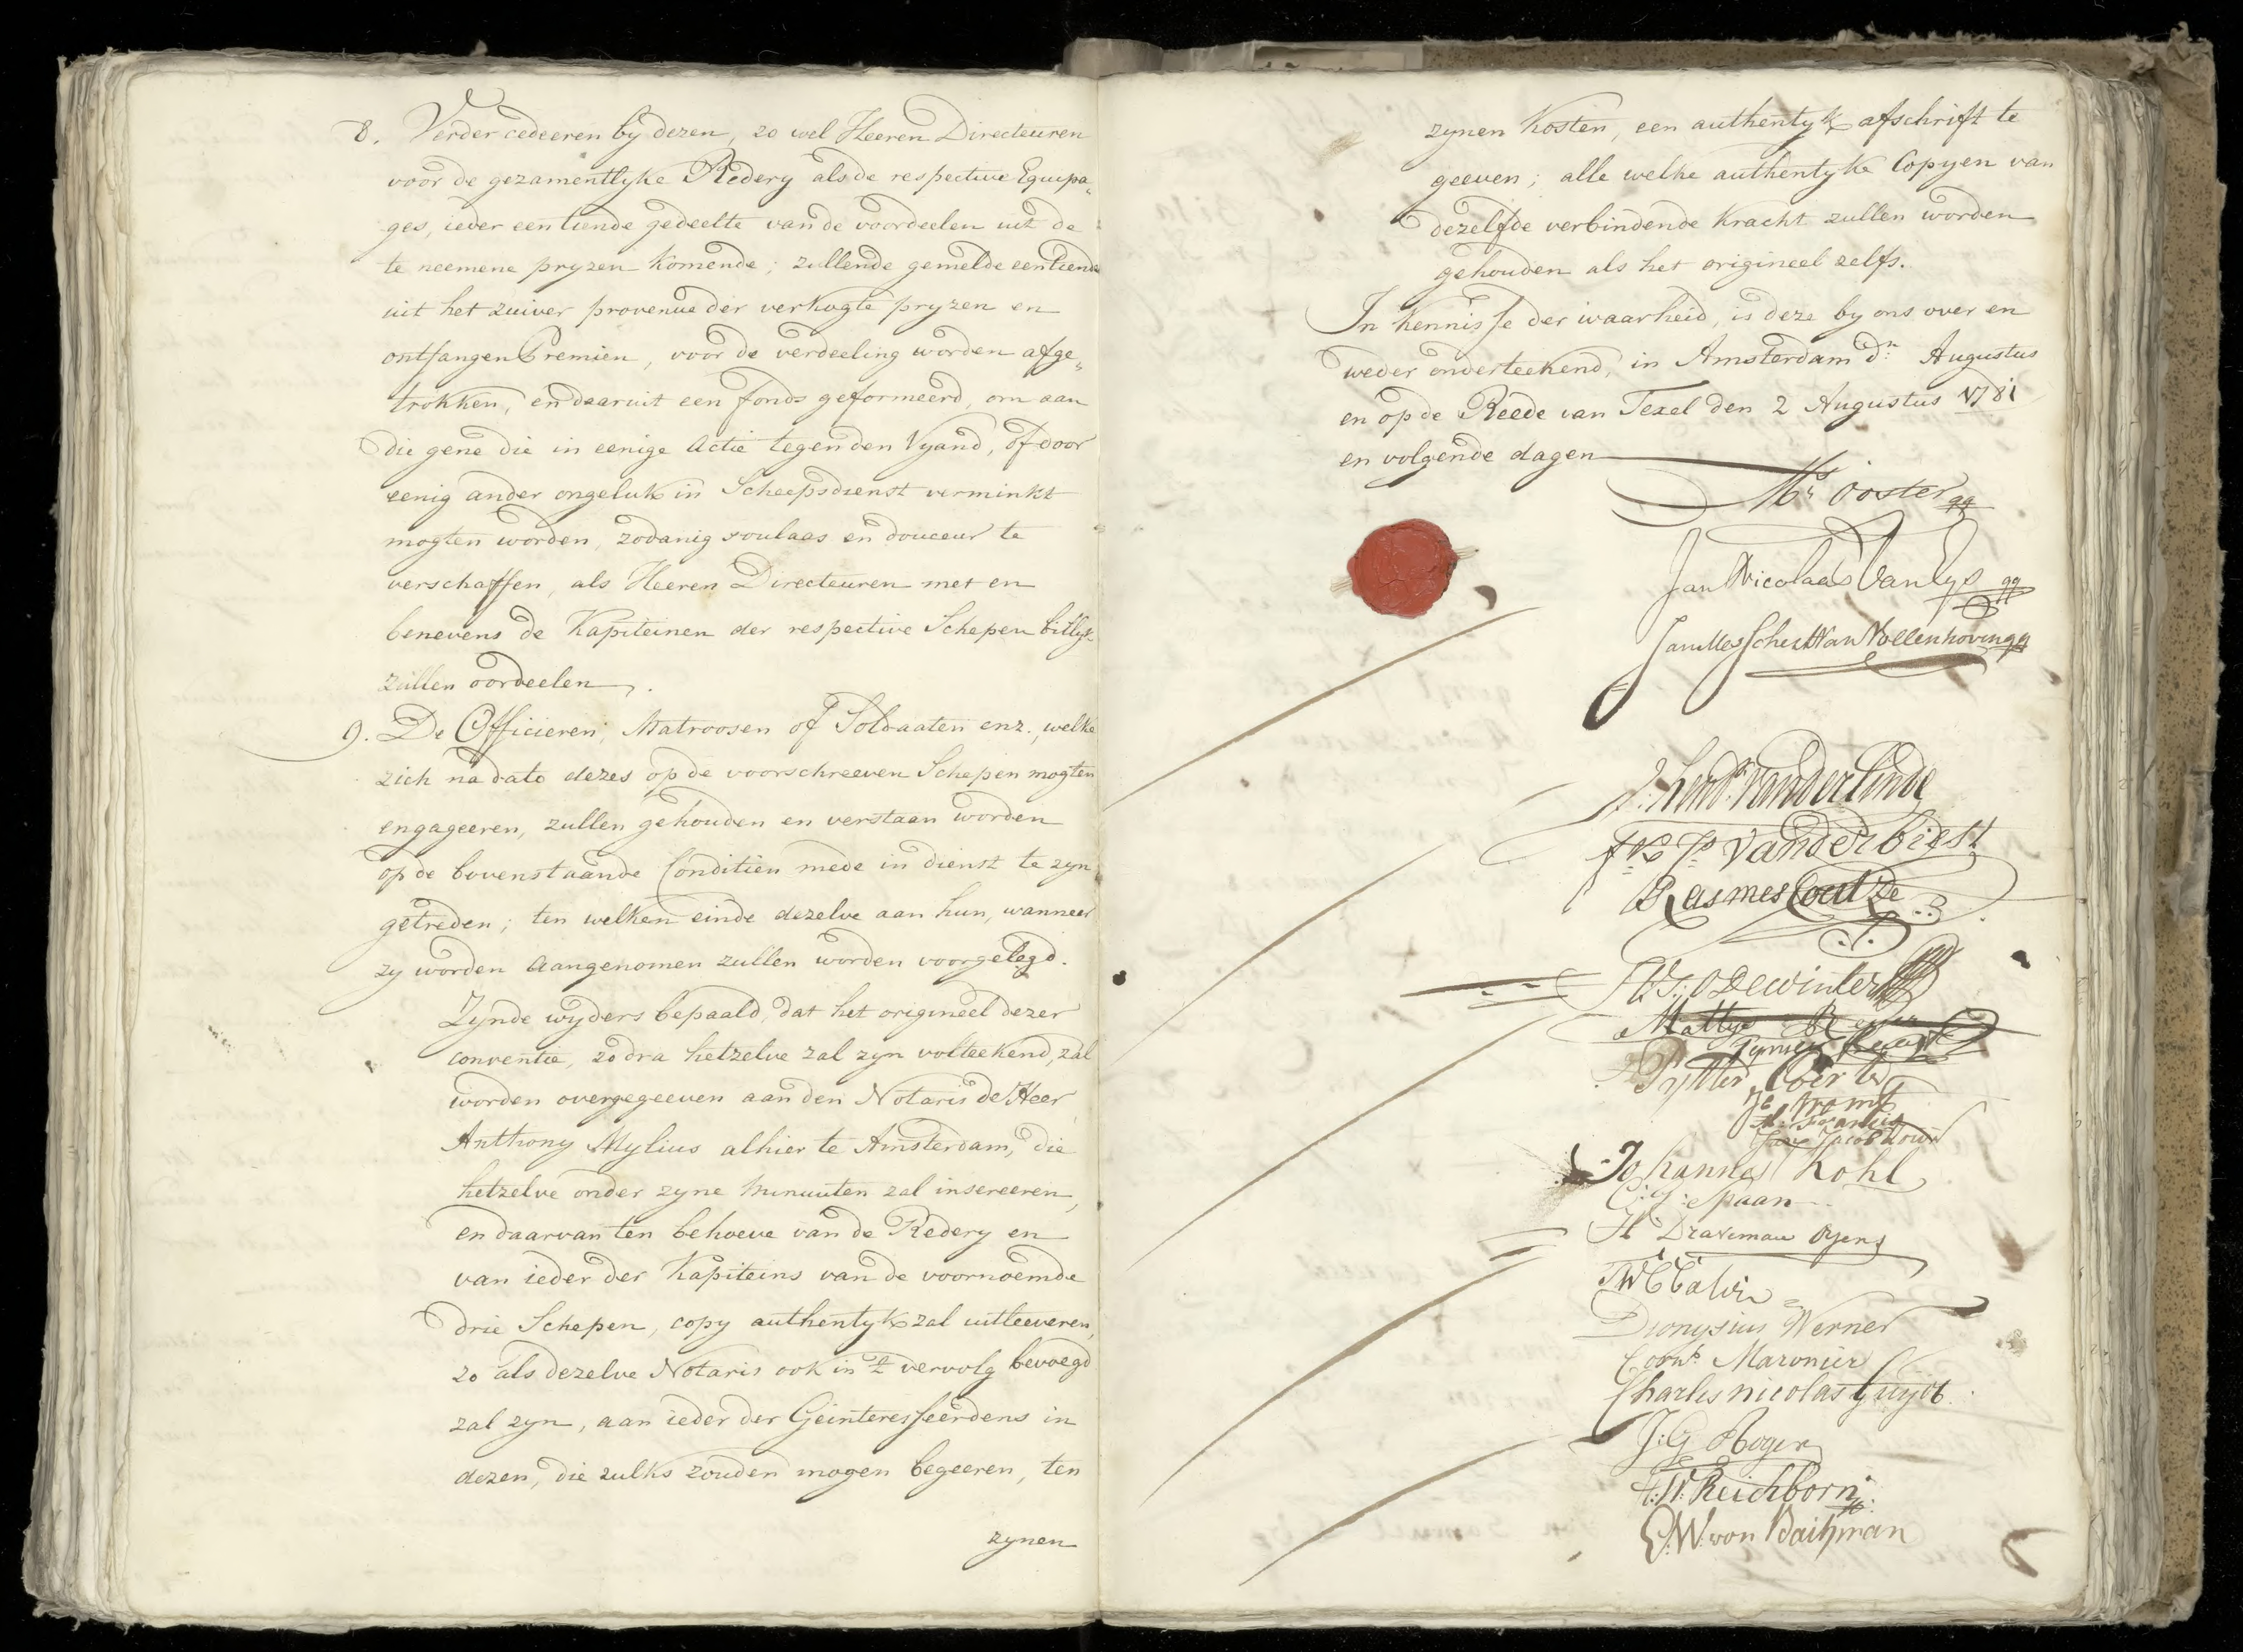 8. Verder cedeeren by dezen, zo wel Heeren Directeuren
voor de gezamentlyke Redery als de respective Equipa„
ges, ieder een tiende gedeelte van de voordeelen uit de
te neemene pryzen komende; zullende gemelde een tiende
uit het zuiver provenue der verkogte pryzen en
ontfangen Premien, voor de verdeeling worden afge„
trokken, en daaruit een fonds geformeerd, om aan
die gene die in eenige Actie tegen den Vyand, of door
eenig ander ongeluk in Scheepsdienst verminkt
mogten worden, zodanig soulaas en douceur te
verschaffen, als Heeren Directeuren met en
benevens de Kapiteinen der respective Schepen billyk
zullen oordeelen.
9. De Officieren, Matroosen of Soldaaten enz., welke
zich na dato dezes op de voorschreeven Schepen mogten
engageeren, zullen gehouden en verstaan worden
op de bovenstaande Conditien mede in dienst te zyn
getreden; ten welken einde dezelve aan hun, wanneer
zy worden aangenomen zullen worden voorgelegd.
Zynde wyders bepaald, dat het origineel dezer
conventie, zodra hetzelve zal zyn volteekend, zal
worden overgegeeven aan den Notaris de Heer
Anthony Mylius alhier te Amsterdam, die
hetzelve onder zyne minuuten zal insereeren,
en daarvan ten behoeve van de Redery en
van ieder der Kapiteins van de voornoemde
drie Schepen, copy authentyk zal uitleeveren,
zo als dezelve Notaris ook in 't vervolg bevoegd
zal zyn, aan ieder der Geinteresseerdens in
dezen, die zulks zouden mogen begeeren, ten
zynen
zynen kosten, een authentyk afschrift te
geeven; alle welke authentyke Copyen van
dezelfde verbindende kracht zullen worden
gehouden als het origineel zelfs.
In kennisse der waarheid, is deze by ons over en
weder onderteekend, in Amsterdam dn. Augustus
en op de Reede van Texel den 2 Augustus 1781
en volgende dagen
Ms. Ooster qq
Jan Nicolaas Van Eys qq
Jan Messchert Van Vollenhoven qq
J. Hendk. Vander Linde
Vander Biest
Rasmes Coutze
Dewinter
Mattys
Pytter Obertz
Jan Jacob
Johannes Kohl
C: J: Spaan
H Drakeman Oyens
JWC Calvi
Dionysius Werner
Corns. Maronier
Charles nicolas Guijot.
J: G Roger
F: W: Reichborn
C. W. von Baihman